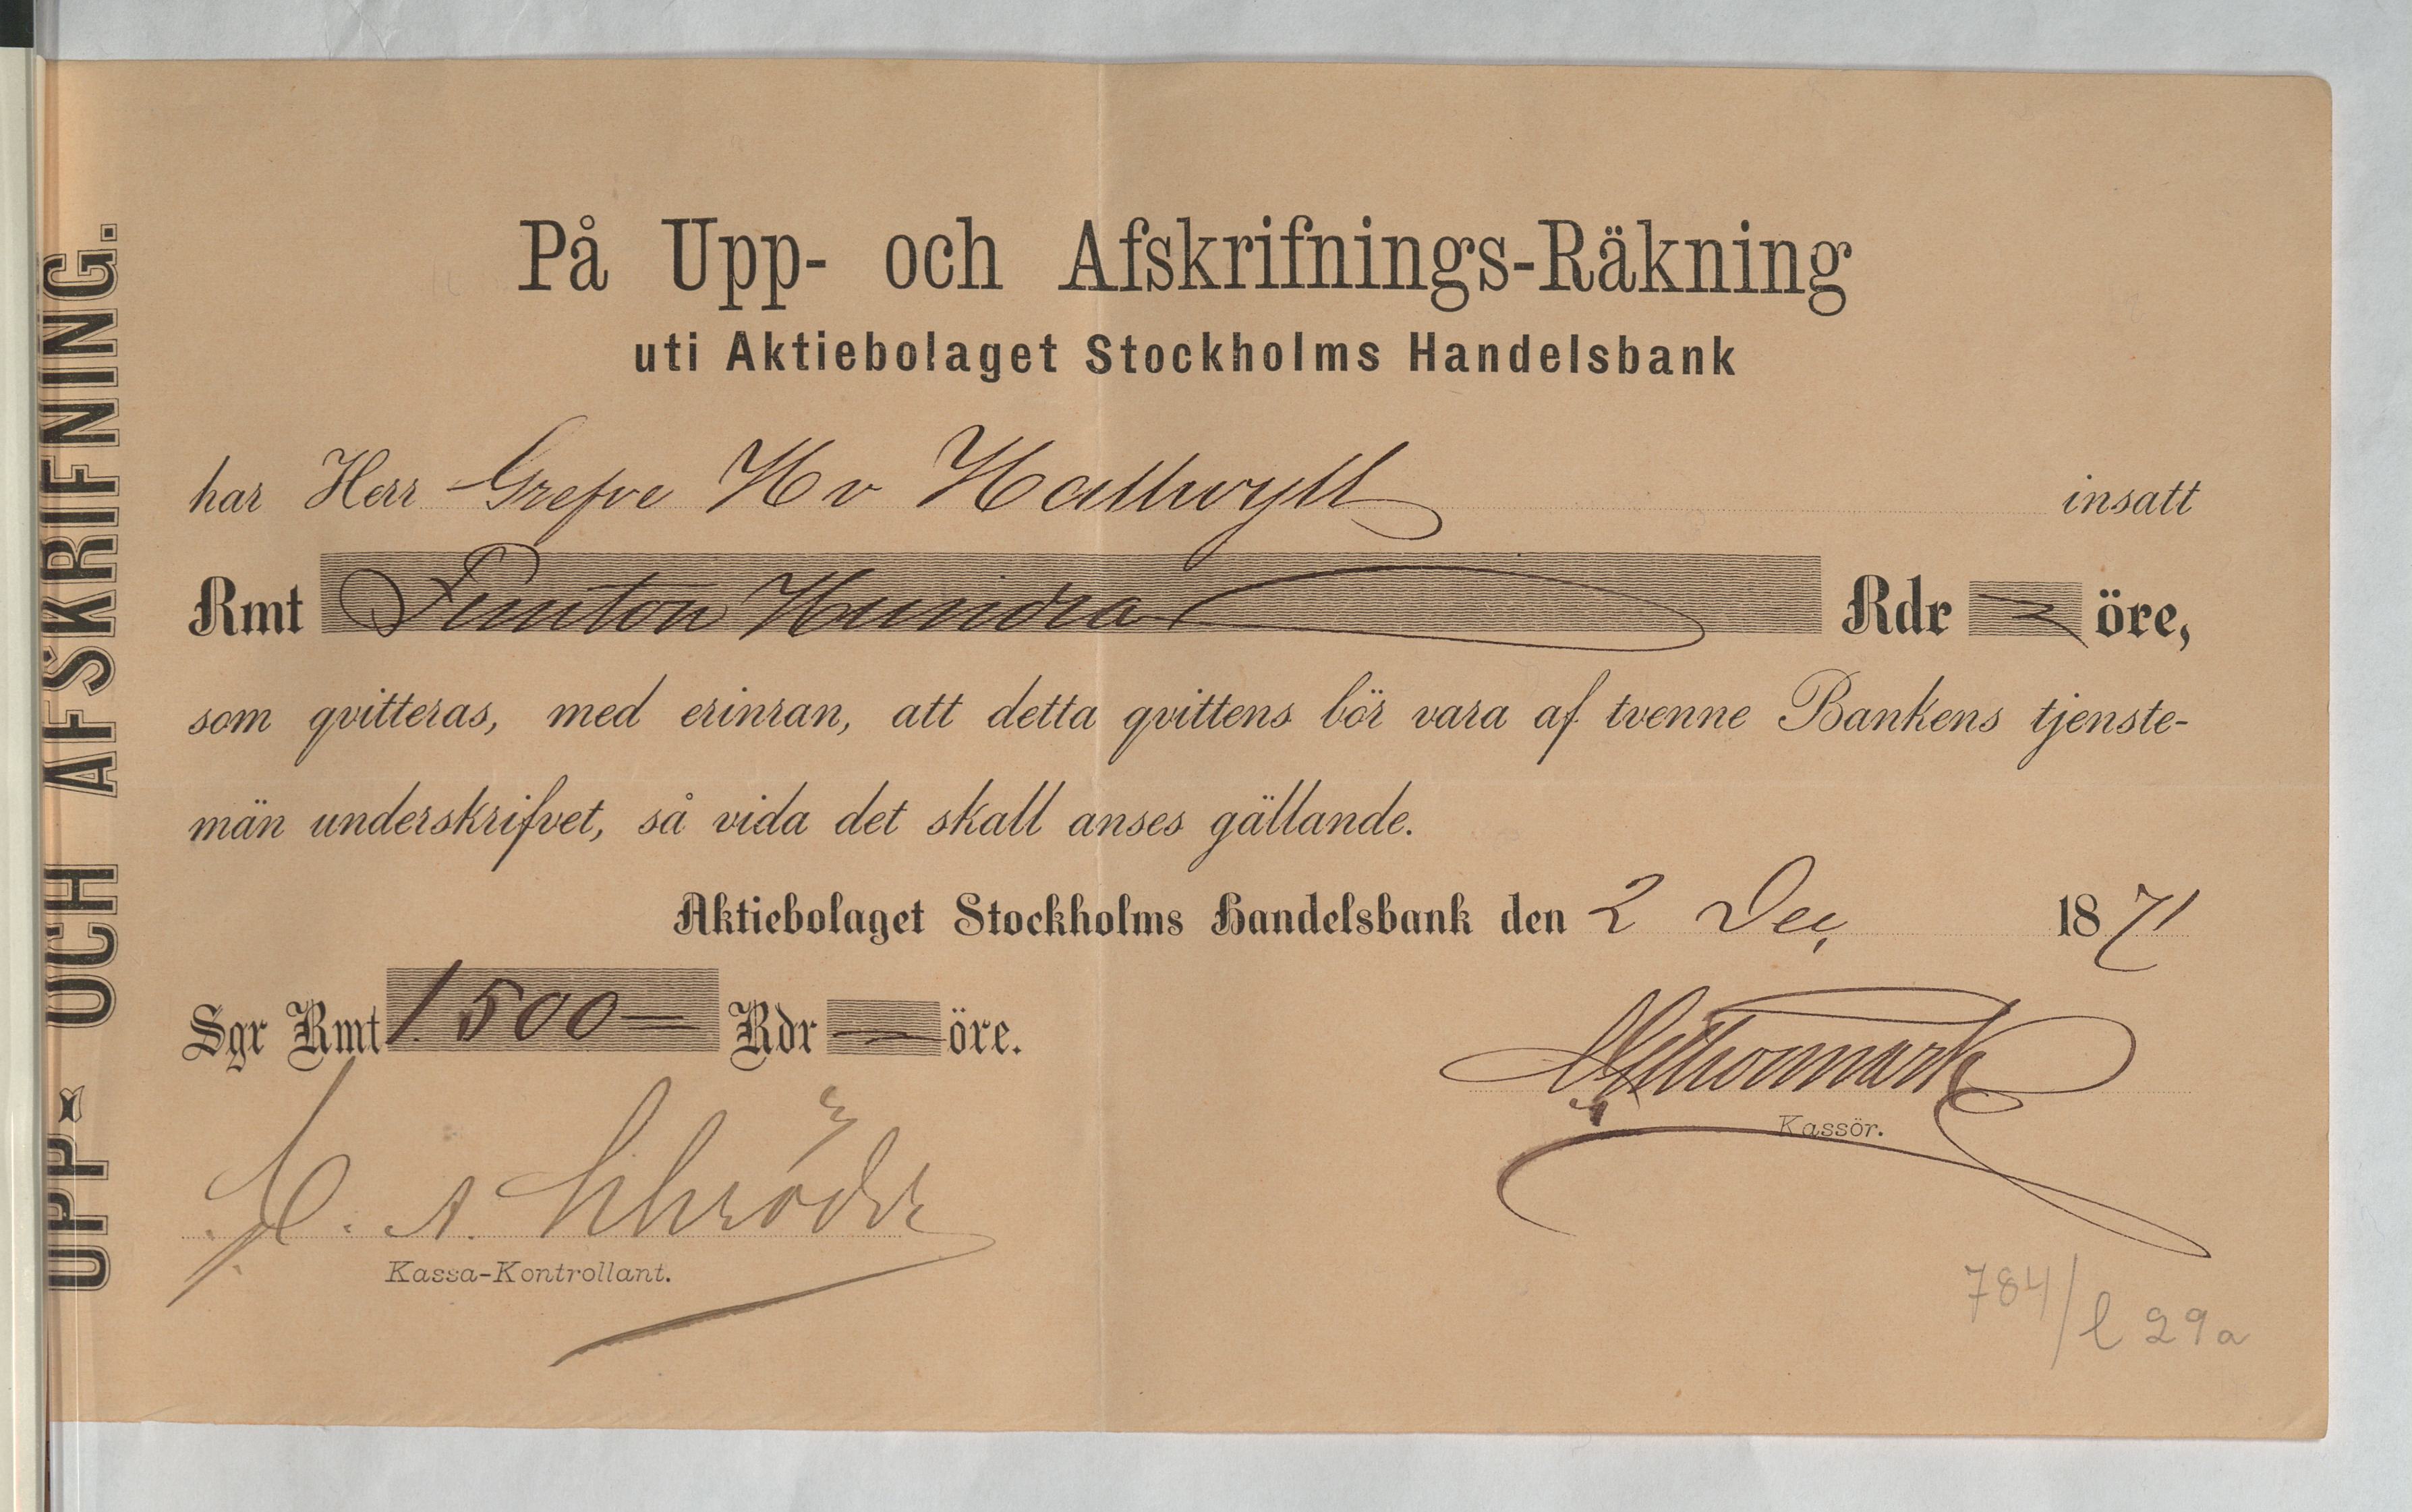 UPP- OCH AFSKRIFNING.
På Upp- och Afskrifnings-Räkning
uti Aktiebolaget Stockholms Handelsbank
har Herr Grefve H v Hallwyll insatt
Rmt Femton Hundra Rdr — öre,
som qvitteras, med erinran, att detta qvittens bör vara af tvenne Bankens tjenste-
män underskrifvet, så vida det skall anses gällande.
Aktiebolaget Stockholms Handelsbank den 2 Dec 1871
Sgr Rmt 1500— Rdr — öre.
C. A. Schröder
Kassör.
Kassa-Kontrollant.
784/l 29a